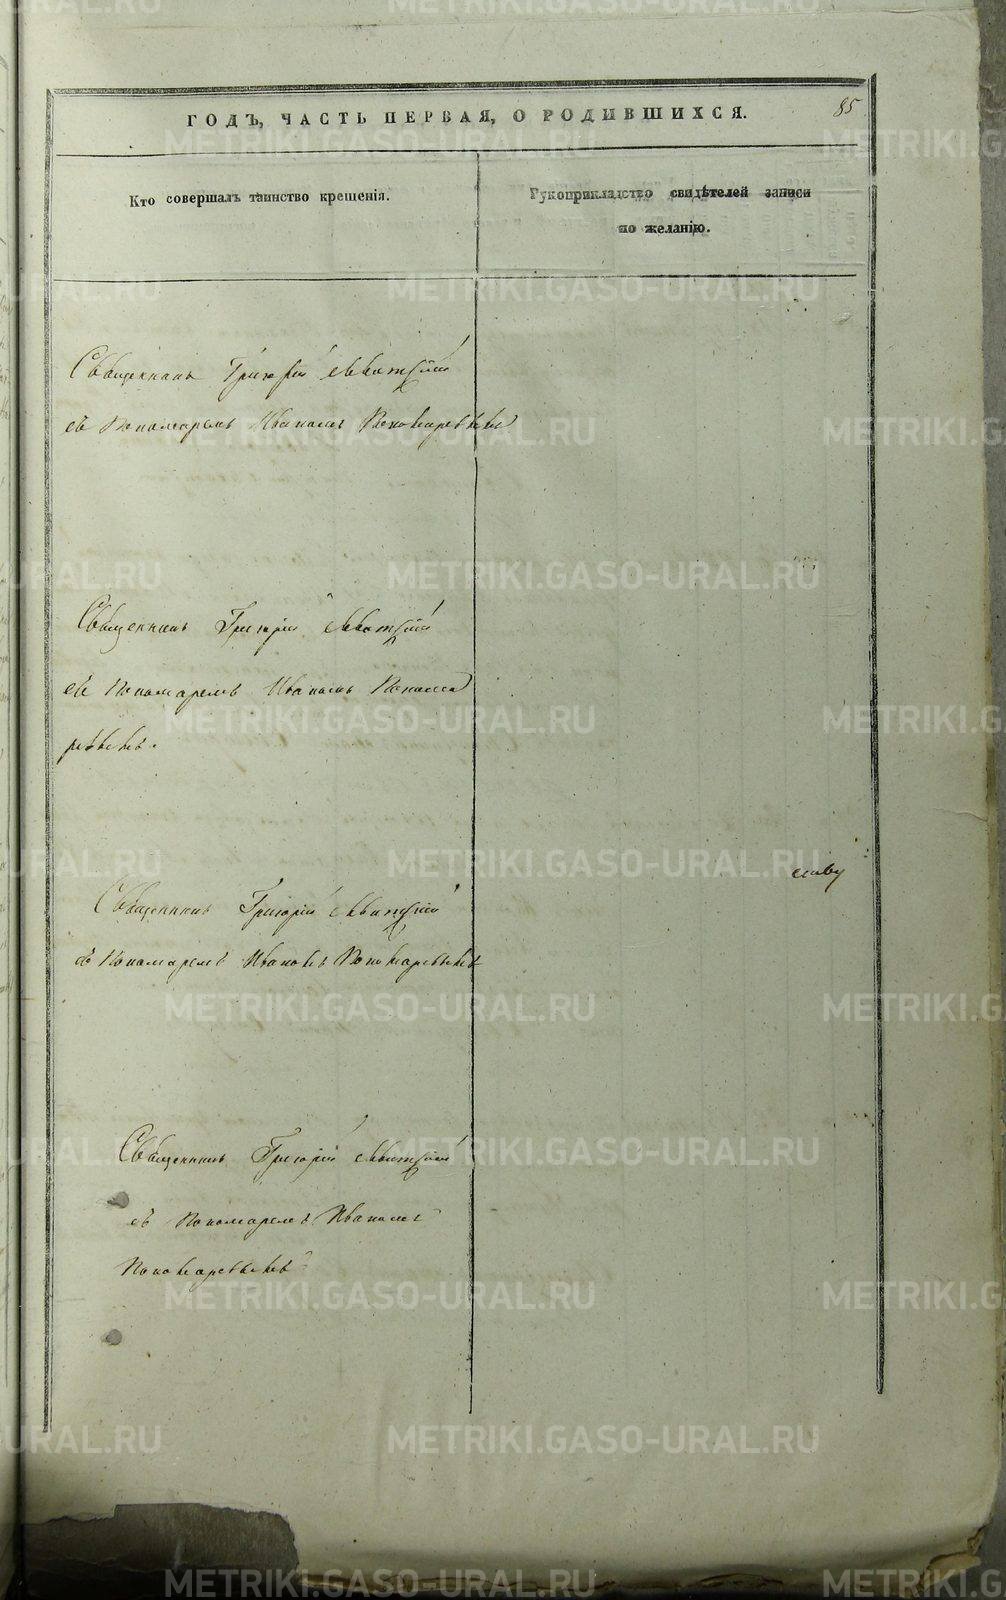 85
ГОДЪ, ЧАСТЬ ПЕРВАЯ, О РОДИВШИХСЯ.
Кто совершалъ таинство крещенія.
Рукоприкладство свидѣтелей записи
по желанію.
Священникъ Григорій
съ Пономаремъ Иваномъ Пономаревымъ
Священникъ Григорій
съ Пономаремъ Иваномъ Понома
ревымъ.
Священникъ Григорій
съ Пономаремъ Иваномъ Пономаревымъ
Священникъ Григорій
съ Пономаремъ Иваномъ
Пономаревымъ
METRIKI.GASO-URAL.RU